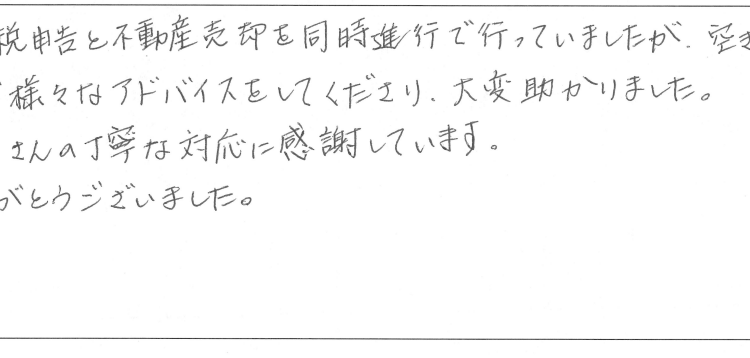 税申告と不動産売却を同時進行で行っていましたが、空き
様々なアドバイスをしてくださり、大変助かりました。
さんの丁寧な対応に感謝しています。
がとうございました。